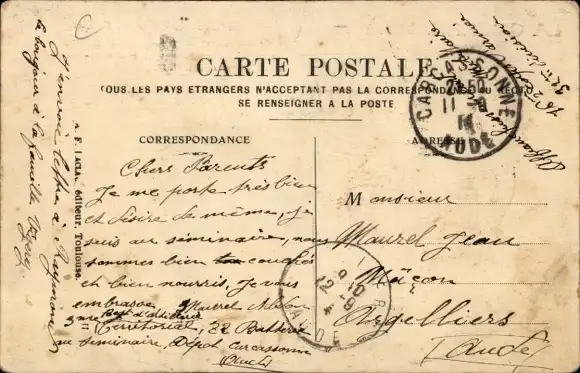 CARTE POSTALE
TOUS LES PAYS ETRANGERS N'ACCEPTANT PAS LA CORRESPONDANCE AU RECTO
SE RENSEIGNER A LA POSTE
CORRESPONDANCE
ADRESSE
Chers Parents
Je me porte très bien
et désire de même, je
suis au séminaire, nous
sommes bien couchés
et bien nourris, Je vous
embrasse Maurel
Territorial, 32 Batterie
au séminaire, Dépôt Carcassonne
(Aude)
Monsieur
Maurel Jean
Maçon
Argelliers
(Aude)
CARCASSONNE
11 - 9
14
AUDE
9 10
12 - 9
AUDE
A. F. éditeur, Toulouse.
J'envoie lettre à Raymond
le bonjour à la famille